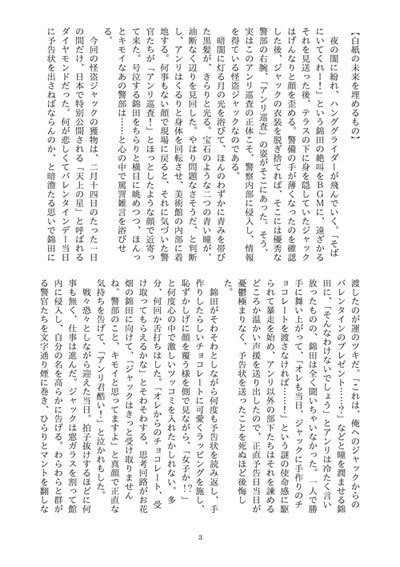 【白紙の未来を埋めるもの】
　夜の闇に紛れ、ハンググライダーが飛んでいく。「そば
にいてくれー！」という錦田の絶叫をＢＧＭに、遠ざかる
それを見送った後、テラスの下に身を隠していたジャック
はげんなりと顔を歪める。警備の手が薄くなったのを確認
した後、ジャックの衣装を脱ぎ捨てれば、そこには優秀な
警部の右腕、「アンリ巡査」の姿がそこにあった。そう、
実はこのアンリ巡査の正体こそ、警察内部に侵入し、情報
を得ている怪盗ジャックなのである。
　暗闇に灯る月の光を浴びて、ほんのわずかに青みを帯び
た黒髪が、きらりと光る。宝石のような二つの青い瞳が、
油断なく辺りを見回した。やはり問題なさそうだ、と判断
し、アンリはくるりと身体を回転させ、美術館の内部に着
地する。何事もない顔で現場に戻ると、それに気づいた警
官たちが「アンリ巡査！」とほっとしたような顔で近寄っ
て来た。号泣する錦田をちらりと横目に眺めつつ、ほんっ
とキモイなあの警部は……と心の中で罵詈雑言を浴びせ
た。
　今回の怪盗ジャックの獲物は、二月十四日のたった一日
の間だけ、日本で特別公開される「天上の星」と呼ばれる
ダイヤモンドだった。何が悲しくてバレンタインデー当日
に予告状を出さねばならんのか、と暗澹たる思いで錦田に
渡したのが運のツキだ。「これは、俺へのジャックからの
バレンタインのプレゼント……？」などと瞳を潤ませる錦
田に、「そんなわけないでしょう」とアンリは冷たく言い
放ったものの、錦田は全く聞いちゃいなかった。一人で勝
手に舞い上がって、「オレも当日、ジャックに手作りのチ
ョコレートを渡さなければ……！」という謎の使命感に駆
られて暴走を始め、アンリ以外の部下たちはそれを諫める
どころか温かい声援を送り出したので、正直予告日当日が
憂鬱極まりなく、予告状を送ったことを死ぬほど後悔し
た。
　錦田がそわそわとしながら何度も予告状を読み返し、手
作りしたらしいチョコレートに可愛くラッピングを施し、
恥ずかしげに顔を覆う様を側で見ながら、「女子か！？」
と何度心の中で激しいツッコミを入れたかしれない。多
分、何回か舌打ちはした。「オレからのチョコレート、受
け取ってもらえるかな」とそわそわする、思考回路がお花
畑の錦田に向けて、「ジャックはきっと受け取りません
ね。警部のこと、キモイと思ってますよ」と真顔で正直な
気持ちを告げて、「アンリ君酷い！」と泣かれもした。
　戦々恐々としながら迎えた当日。拍子抜けするほどに何
事も無く、仕事は進んだ。ジャックは窓ガラスを割って館
内に侵入し、自分の名を高らかに告げる。わらわらと群が
る警官たちを文字通り煙に巻き、ひらりとマントを翻しな
3